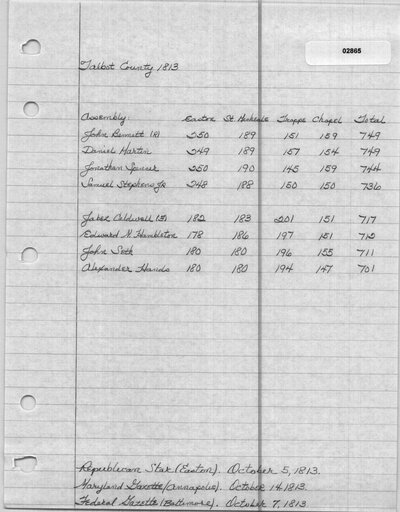 02865
Talbot County 1813
Assembly: Easton St. Michaels Trappe Chapel Total
John Bennett (R) 250 189 151 159 749
Daniel Martin 249 189 157 154 749
Jonathan Spencer 250 190 145 159 744
Samuel Stephens Jr. 248 188 150 150 736
Jabez Caldwell (F) 182 183 201 151 717
Edward N. Hambleton 178 186 197 151 712
John Seth 180 180 196 155 711
Alexander Hands 180 180 194 147 701
Republican Star (Easton). October 5, 1813.
Maryland Gazette (Annapolis). October 14, 1813.
Federal Gazette (Baltimore). October 7, 1813.